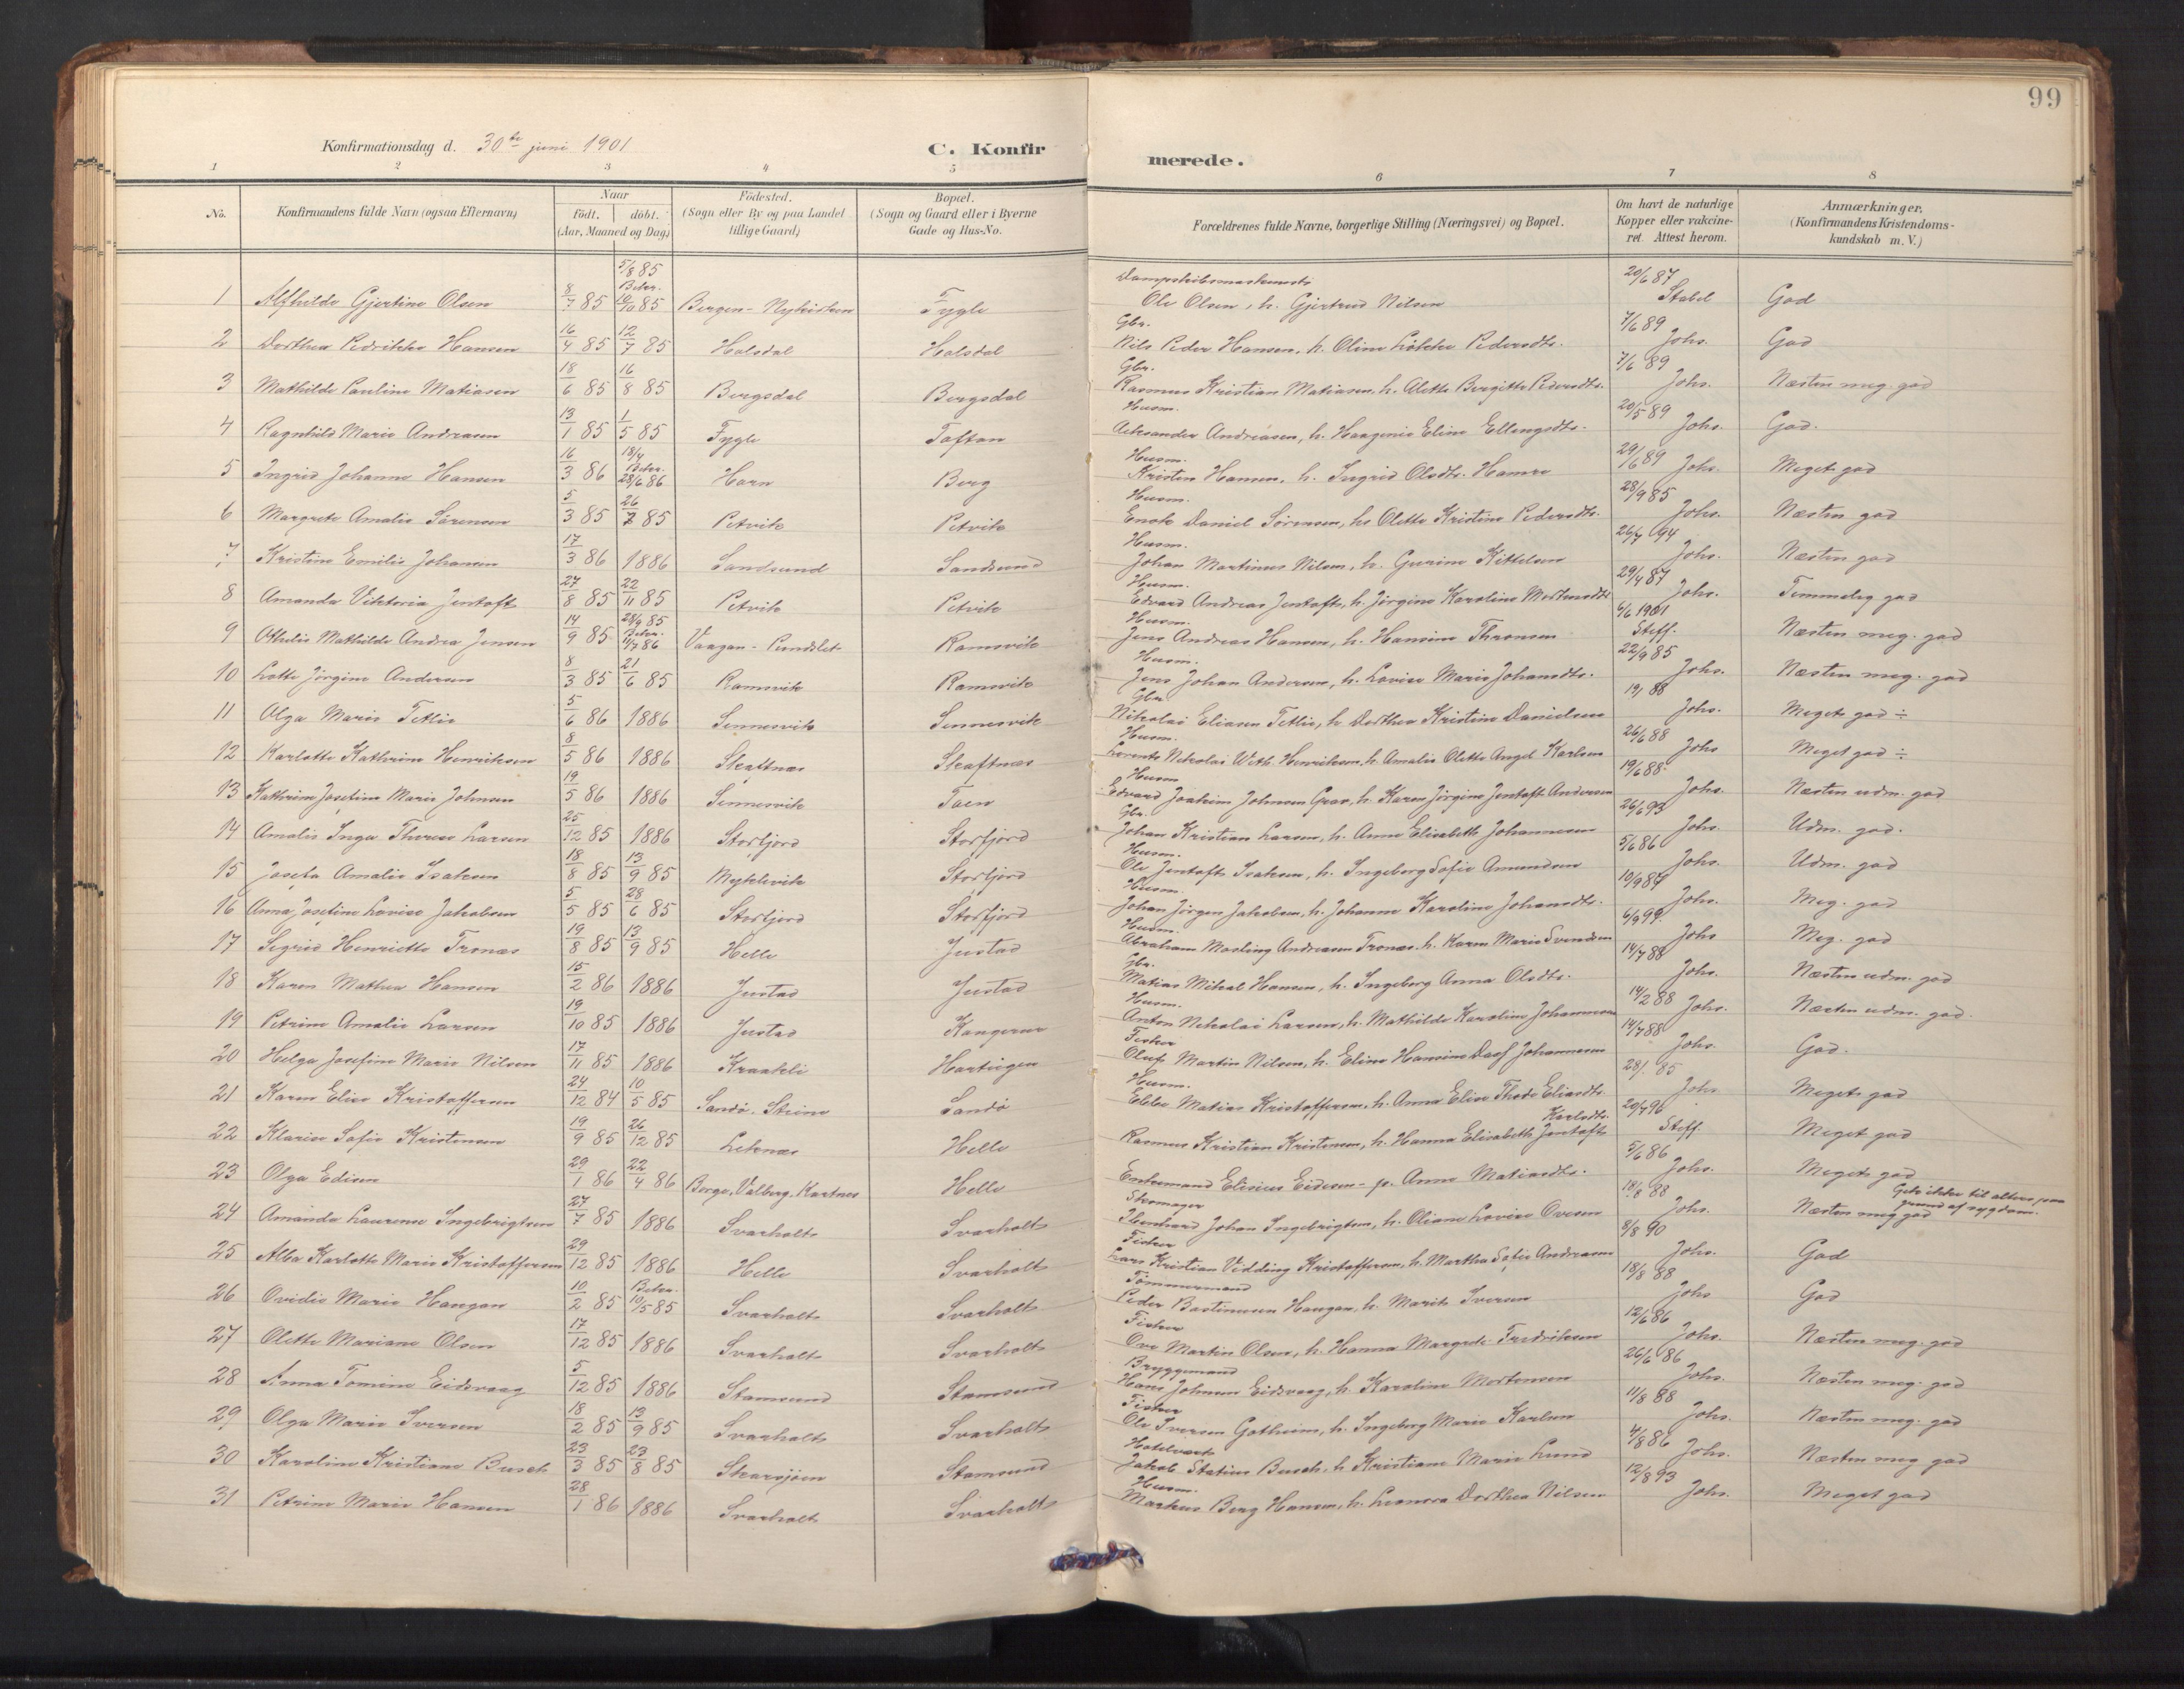 99
Konfirmationsdag d. 30te juni 1901
C. Konfirmerede.
1 2 3 4 5 6 7 8
No. | Konfirmandens fulde Navn (ogsaa Efternavn) | Naar födt. döbt. (Aar, Maaned og Dag) | Födested. (Sogn eller By og paa Landet tillige Gaard) | Bopæl. (Sogn og Gaard eller i Byerne Gade og Hus-No. | Forældrenes fulde Navne, borgerlige Stilling (Næringsvei) og Bopæl. | Om havt de naturlige Kopper eller vakcineret. Attest herom. | Anmærkninger. (Konfirmandens Kristendomskundskab m. V.)
1 Alfhilde Gjertine Olsen 8/7 85 5/8 85 Bekr. 10/10 85 Bergen - Nykirken Fygle Ole Olsen, h. Gjertrud Nilsen 20/6 87 Stabel God
2 Dorthea Pedrikke Hansen 16/4 85 12/7 85 Holsdal Holsdal Gbr. Nils Peder Hansen, h. Oline Lökke Pedersdtr. 7/6 89 Johs. God
3 Mathilde Pauline Matiasen 18/6 85 16/8 85 Bergsdal Bergsdal Gbr. Rasmus Kristian Matiasen, h. Alette Bergitte Pedersdtr. 7/6 89 Johs. Næsten meg. god
4 Ragnhild Marie Andreasen 13/1 85 1/5 85 Fygle Toftan Husm. Aleksander Andreasen, h. Haagenie Eline Ellengsdtr. 20/5 89 Johs. God.
5 Ingrid Johanna Hansen 16/3 86 18/4 Bekr. 28/6 86 Horn Berg Husm. Kristen Hansen, h. Ingrid Olsdtr. Hamre 29/6 89 Johs. Meget god
6 Margrete Amalie Sörensen 5/3 85 26/7 85 Petvik Petvik Husm. Enok Daniel Sörensen, h. Olette Kristine Pedersdtr. 28/9 85 Johs. Næsten god
7 Kristine Emilie Johansen 17/3 86 1886 Sandsund Sandsund Husm. Johan Martinus Nilsen, h. Gurine Kittelsen 26/7 94 Johs. Næsten god
8 Amanda Viktoria Jentoft 27/8 85 22/11 85 Petvik Petvik Husm. Edvard Andreas Jentoft, h. Jörgine Karoline Mortensdtr 29/4 87 Johs. Temmelig god
9 Othelie Mathilde Andrea Jensen 14/9 85 28/9 85 Bekr. 11/7 86 Vaagan - Pundslet Ramsvik Husm. Jens Andreas Hansen, h. Hansine Thronsen 6/6 1901 Steff. Næsten meg. god
10 Lotte Jörgine Andersen 8/3 85 21/6 85 Ramsvik Ramsvik Husm. Jens Johan Andersen, h. Lovise Marie Johansdtr. 22/9 85 Johs. Næsten meg. god
11 Olga Marie Tetlie 5/6 86 1886 Sennesvik Sennesvik Gbr. Nikolai Eliasen Tetlie, h. Dorthea Kristine Danielsen 88 Johs. Meget god ÷
12 Karlotte Kathrine Henriksen 8/5 86 1886 Skaftnæs Skaftnæs Husm. Lorents Nikolai With Henriksen, h. Amalie Olette Angel Karlsen 26/6 88 Johs Meget god ÷
13 Kathrine Josefine Marie Johnsen 19/5 86 1886 Sennesvik Toen Husm Edvard Joakim Johnsen Grav, h. Karen Jörgine Jentoft Andersen 19/6 88. Johs. Næsten udm. god
14 Amalie Inga Therese Larsen 25/12 85 1886 Storfjord Storfjord Gbr. Johan Kristian Larsen, h. Anna Elisabeth Johannesen 26/6 93 Johs. Udm. god.
15 Josefa Amalie Isaksen 18/8 85 13/9 85 Myklevik Storfjord Husm. Ole Jentoft Isaksen, h. Ingeborg Sofie Amundsen 5/6 86 Johs. Udm. god
16 Anna Josefine Lovise Jakobsen 5/5 85 28/6 85 Storfjord Storfjord Husm. Johan Jörgen Jakobsen, h. Johanna Karoline Johansdtr. 10/9 87 Johs. Meg. god
17 Sigrid Henriette Tronæs 19/8 85 13/9 85 Helle Justad Husm. Abraham Mosling Andreasen Tronæs. h. Karen Marie Svendsen 6/9 99. Johs Meg. god
18 Karen Mathea Hansen 15/2 86 1886 Justad Justad Gbr. Matias Mikal Hansen, h. Ingeborg Anna Olsdtr. 14/7 88 Johs. Næsten udm. god
19 Petrine Amalie Larsen 19/10 85 1886 Justad Kangerur Husm. Anton Nikolai Larsen, h. Mathilde Karoline Johannesen 14/2 88 Johs. Næsten udm. god.
20 Helga Josefine Marie Nilsen 17/11 85 1886 Kraakli Hartvigen Fisker Oluf Martin Nilsen, h. Eline Hansine Daaf Johannesen 14/7 88 Johs. God.
21 Karen Elise Kristoffersen 24/12 84 10/5 85 Sandö. Steine Sandö Husm. Ebbe Matias Kristoffersen, h. Anna Elise Thode Eliasdtr. 85 Johs Meget god
22 Klarise Sofie Kristensen 19/9 85 26/12 85 Leknæs Helle Rasmus Kristian Kristensen, h. Hanna Elisabeth Jentoft Karlsdtr. 20/7 96 Steff. Meget god
23 Olga Edisen 29/1 86 22/4 86 Borge, Valberg. Kartnes Helle Enkemand Elisius Eidesen - p. Anne Matiasdtr. 5/6 86 Johs. Meget god
24 Amanda Laurense Ingebrigtsen 27/7 85 1886 Svarholt Svarholt Skomager Iberhard Johan Ingebrigtsen, h. Oliane Lovise Ovesen 18/8 88 Johs. Næsten meg god Gik ikke til alters paa grund af sygdom.
25 Alba Karlotte Marie Kristoffersen 29/12 85 1886 Helle Svarholt Fisker Lars Kristian Vidding Kristoffersen, h. Martha Sofie Andreasen 8/8 90 Johs. God
26 Ovidie Marie Haugan 10/2 85 Bekr. 10/5 85 Svarholt Svarholt Tömmermand Peder Bastinusen Haugan, h. Marit Iversen 18/8 88 Johs God
27 Olette Mariane Olsen 17/12 85 1886 Svarholt Svarholt Fisker Ove Martin Olsen, h. Hanna Margrete Fredriksen 12/6 86 Johs. Næsten meg. god
28 Anna Tomine Eidsvaag 5/12 85 1886 Stamsund Stamsund Bryggemand Hans Johnsen Eidsvaag, h. Karoline Mortensen 26/6 86 Johs. Næsten meg. god
29 Olga Marie Iversen 18/2 85 13/9 85 Svarholt Svarholt Fisker Ole Iversen Gotheim, h. Ingeborg Marie Karlsen 11/8 88 Johs. Næsten meg. god
30 Karoline Kristiane Busch 23/3 85 23/8 85 Skarsjöen Stamsund Hotelvært Jakob Statius Busch, h. Kristiane Marie Lund 4/8 86 Johs. Næsten meg god
31 Petrine Marie Hansen 28/1 86 1886 Svarholt Svarholt Husm. Markus Berg Hansen, h. Leonora Dorthea Nilsen 12/8 93 Johs. Meget god